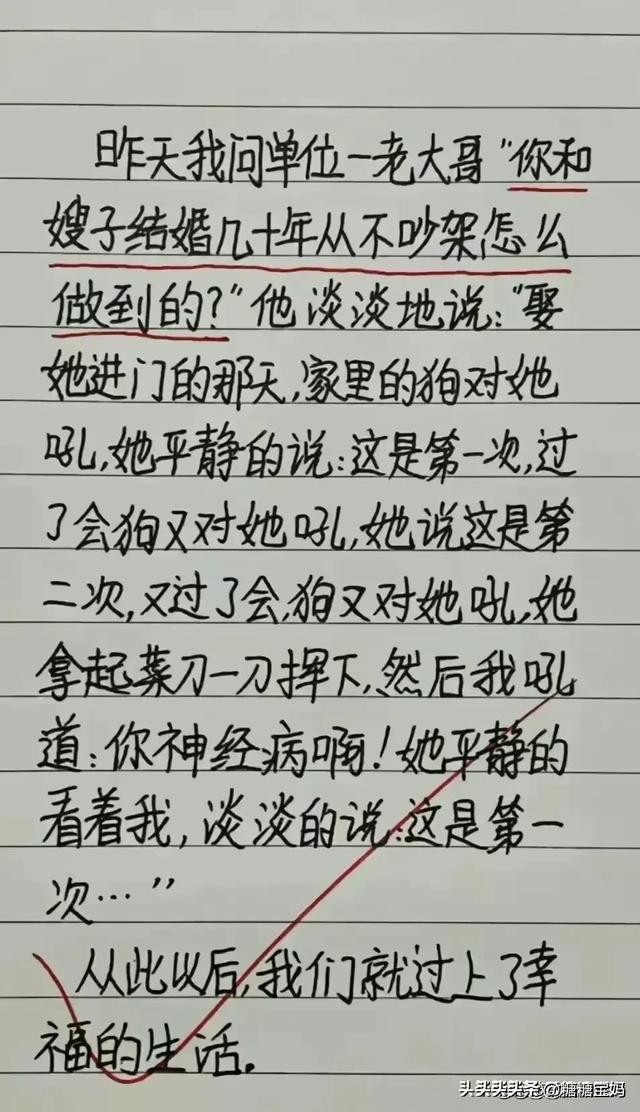 昨天我问单位一老大哥“你和
嫂子结婚几十年从不吵架怎么
做到的?”他淡淡地说:“娶
她进门的那天,家里的狗对她
吼,她平静的说:这是第一次,过
了会狗又对她吼,她说这是第
二次,又过了会,狗又对她吼,她
拿起菜刀一刀挥下,然后我吼
道:你神经病啊!她平静的
看着我,淡淡的说:这是第一
次…”
从此以后,我们就过上了幸
福的生活.
@糖糖宝妈